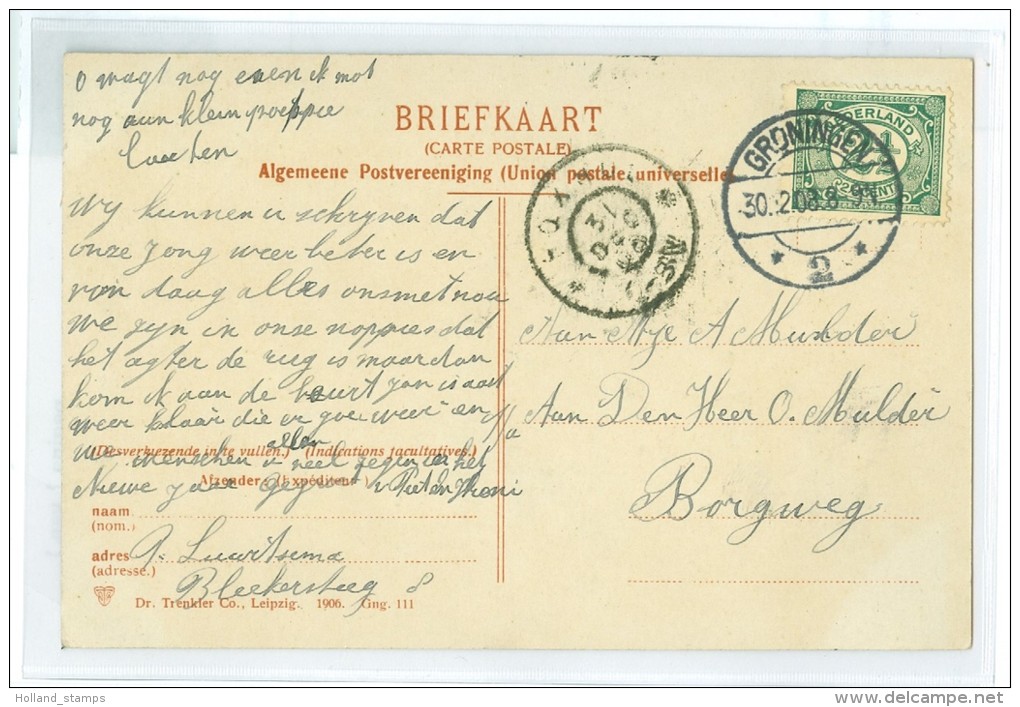 O wagt nog even ik mot
nog aan klein poessie
laaten
BRIEFKAART
(CARTE POSTALE)
Algemeene Postvereeniging (Union postale universelle)
NEDERLAND
CENT
GRONINGEN
30.12.08.8-9V
2
Wy kunnen u schryven dat
onze jong weer beter is en
van daag alles ons met nou
We zyn in onze noppies dat
het agter de rug is maar dan
kom ik aan de beurt Jan is aast
weer klaar die er goe weer en
(Desverkiezende in te vullen.) (Indications facultatives.)
We wenschen u allen veel zegen in het
Afzender: (Expéditeur)
Niewe jaar gegroet v Piet en
naam
(nom.)
adres P. Luurtsema
(adresse.) Bleekersteeg 8
Dr. Trenkler Co., Leipzig. 1906. Gng. 111
Aan A Mulder
Aan Den Heer O. Mulder
Borgweg
Holland_stamps
delcampe.net